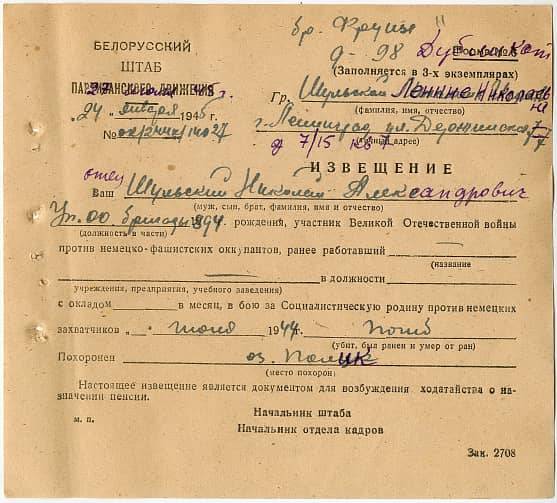 бр. Фрунзе
9-98 Дубликат
БЕЛОРУССКИЙ
ШТАБ
ПАРТИЗАНСКОГО ДВИЖЕНИЯ
(Заполняется в 3-х экземплярах)
Гр. Шульской
(фамилия, имя, отчество)
„24“ января 1945 г.
№
г. Ленинград ул. Дзержинского
(полный адрес)
д 7/15 кв 1
ИЗВЕЩЕНИЕ
отец
Ваш Шульский Николай Александрович
(муж, сын, брат, фамилия, имя и отчество)
бригады рождения, участник Великой Отечественной войны
(должность в части)
против немецко-фашистских оккупантов, ранее работавший
(название
в должности
учреждения, предприятия, учебного заведения)
с окладом в месяц, в бою за Социалистическую родину против немецких
захватчиков „ июня 1944 г. погиб
(убит, был ранен и умер от ран)
Похоронен оз. Палик
(место похорон)
Настоящее извещение является документом для возбуждения ходатайства о на-
значении пенсии.
Начальник штаба
м. п.
Начальник отдела кадров
Зак. 2708